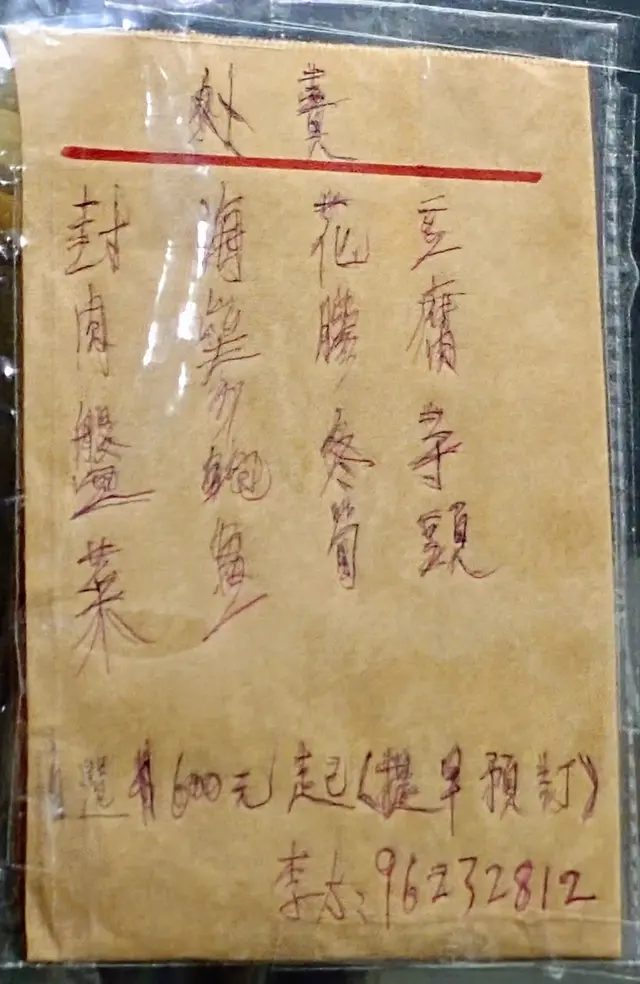 外賣
封肉盤菜
海參鮑魚
花膠冬筍
豆腐芋頭
選$600元起(提早預訂)
李太:96232812